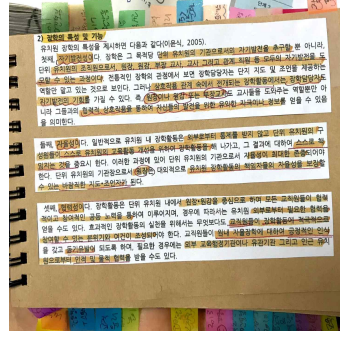 2) 장학의 특성 및 기능
유치원 장학의 특성을 제시하면 다음과 같다(이윤식, 2005).
첫째, 자기발전성이다. 장학은 그 목적상 단위 유치원의 기관으로서의 자기발전을 추구할 뿐 아니라,
단위 유치원의 조직원으로서, 원장, 원감, 부장 교사, 교사 그리고 함께 직원 등 모두의 자기발전을 도
모할 수 있는 과정이다. 전통적인 장학의 관점에서 보면 장학담당자는 단지 지도 및 조언을 제공하는
역할만 맡고 있는 것으로 보인다. 그러나 상호작용 속에서 전개되는 장학활동에서는, 장학담당자도
자기발전의 기회를 가질 수 있다. 즉, 원장이나 원감 또는 부장교사는 교사들을 도와주는 역할뿐만 아
니라 그들과의 협력과 상호작용을 통하여 자신들의 발전을 위한 유익한 자극이나 정보를 얻을 수 있음
을 의미한다.
둘째, 자율성이다. 일반적으로 유치원 내 장학활동은 외부로부터 통제를 받지 않고 단위 유치원의 구
성원들이 유치원의 교육활동 개선을 위하여 장학활동을 해 나가고, 그 결과에 대하여 스스로 책
임지는 것을 중요시 한다. 이러한 과정에 있어 단위 유치원의 기관으로서 자율성이 최대한 존중되어야
한다. 단위 유치원의 기관장으로서 원장은 대외적으로 유치원 장학활동의 책임자들의 자율성을 보장해줄
수 있는 바람직한 지도·조언자가 된다.
셋째, 협력성이다. 장학활동은 단위 유치원 내에서 원장·원감을 중심으로 하여 모든 교직원들이 협동
적이고 참여적인 공동 노력을 통하여 이루어지며, 경우에 따라서는 유치원 외부로부터 필요한 협력을
얻을 수도 있다. 효과적인 장학활동의 실천을 위해서는 무엇보다도 교직원들이 장학활동에 적극적으로
참여할 수 있는 분위기와 여건이 조성되어야 한다. 교직원들이 원내 자율장학에 대하여 긍정적인 인식
을 갖고 동기유발이 되도록 하며, 필요한 경우에는 외부 교육행정기관이나 유관기관 그리고 인근 유치
원으로부터 인적 및 물적 협력을 받을 수도 있다.